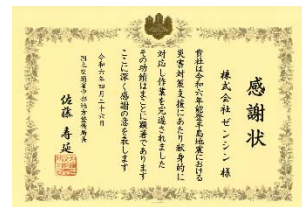 感謝状
株式会社ゼンシン 様
貴社は令和六年能登半島地震における
災害対策支援にあたり献身的に
対応し作業を完遂されました
その功績はまことに顕著であります
ここに深く感謝の意を表します
令和六年四月二十六日
国土交通省中部地方整備局長
佐藤寿延